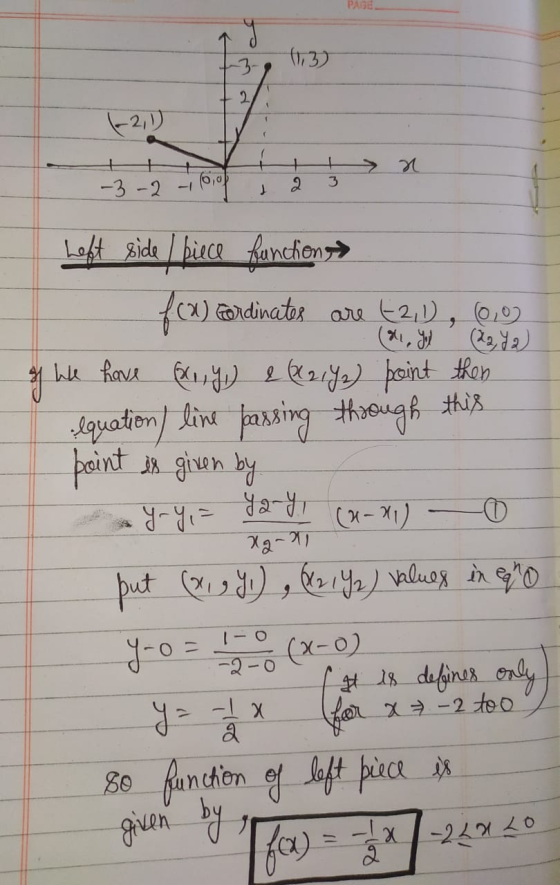 PAGE
y
3 (1,3)
2
(-2,1)
1
-3 -2 -1 (0,0) 1 2 3 x
Left side/piece function→
f(x) cordinates are (-2,1), (0,0)
(x₁, y₁) (x₂, y₂)
If We have (x₁,y₁) & (x₂,y₂) point then
equation/ line passing through this
point is given by
y-y₁ = y₂-y₁/x₂-x₁ (x-x₁) —— ①
put (x₁, y₁), (x₂, y₂) values in eqⁿ①
y-0 = 1-0/-2-0 (x-0)
y = -1/2 x (It is defines only
for x ⇒ -2 to 0)
so function of left piece is
given by, f(x) = -1/2 x -2 ≤ x ≤ 0